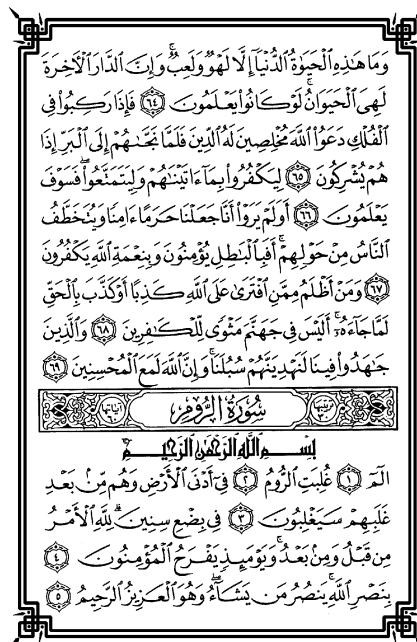 وَمَا هَٰذِهِ ٱلْحَيَوٰةُ ٱلدُّنْيَآ إِلَّا لَهْوٌ وَلَعِبٌ ۚ وَإِنَّ ٱلدَّارَ ٱلْآخِرَةَ
لَهِىَ ٱلْحَيَوَانُ ۚ لَوْ كَانُوا۟ يَعْلَمُونَ ٦٤ فَإِذَا رَكِبُوا۟ فِى
ٱلْفُلْكِ دَعَوُا۟ ٱللَّهَ مُخْلِصِينَ لَهُ ٱلدِّينَ فَلَمَّا نَجَّىٰهُمْ إِلَى ٱلْبَرِّ إِذَا
هُمْ يُشْرِكُونَ ٦٥ لِيَكْفُرُوا۟ بِمَآ ءَاتَيْنَٰهُمْ وَلِيَتَمَتَّعُوا۟ ۖ فَسَوْفَ
يَعْلَمُونَ ٦٦ أَوَلَمْ يَرَوْا۟ أَنَّا جَعَلْنَا حَرَمًا ءَامِنًا وَيُتَخَطَّفُ
ٱلنَّاسُ مِنْ حَوْلِهِمْ ۚ أَفَبِٱلْبَٰطِلِ يُؤْمِنُونَ وَبِنِعْمَةِ ٱللَّهِ يَكْفُرُونَ
٦٧ وَمَنْ أَظْلَمُ مِمَّنِ ٱفْتَرَىٰ عَلَى ٱللَّهِ كَذِبًا أَوْ كَذَّبَ بِٱلْحَقِّ
لَمَّا جَآءَهُۥٓ ۚ أَلَيْسَ فِى جَهَنَّمَ مَثْوًى لِّلْكَٰفِرِينَ ٦٨ وَٱلَّذِينَ
جَٰهَدُوا۟ فِينَا لَنَهْدِيَنَّهُمْ سُبُلَنَا ۚ وَإِنَّ ٱللَّهَ لَمَعَ ٱلْمُحْسِنِينَ ٦٩
ترتيبها ٣٠ سُورَةُ الرُّومِ آياتها ٦٠
بِسْمِ ٱللَّهِ ٱلرَّحْمَٰنِ ٱلرَّحِيمِ
الٓمٓ ١ غُلِبَتِ ٱلرُّومُ ٢ فِىٓ أَدْنَى ٱلْأَرْضِ وَهُم مِّنۢ بَعْدِ
غَلَبِهِمْ سَيَغْلِبُونَ ٣ فِى بِضْعِ سِنِينَ ۗ لِلَّهِ ٱلْأَمْرُ
مِن قَبْلُ وَمِنۢ بَعْدُ ۚ وَيَوْمَئِذٍ يَفْرَحُ ٱلْمُؤْمِنُونَ ٤
بِنَصْرِ ٱللَّهِ ۚ يَنصُرُ مَن يَشَآءُ ۖ وَهُوَ ٱلْعَزِيزُ ٱلرَّحِيمُ ٥